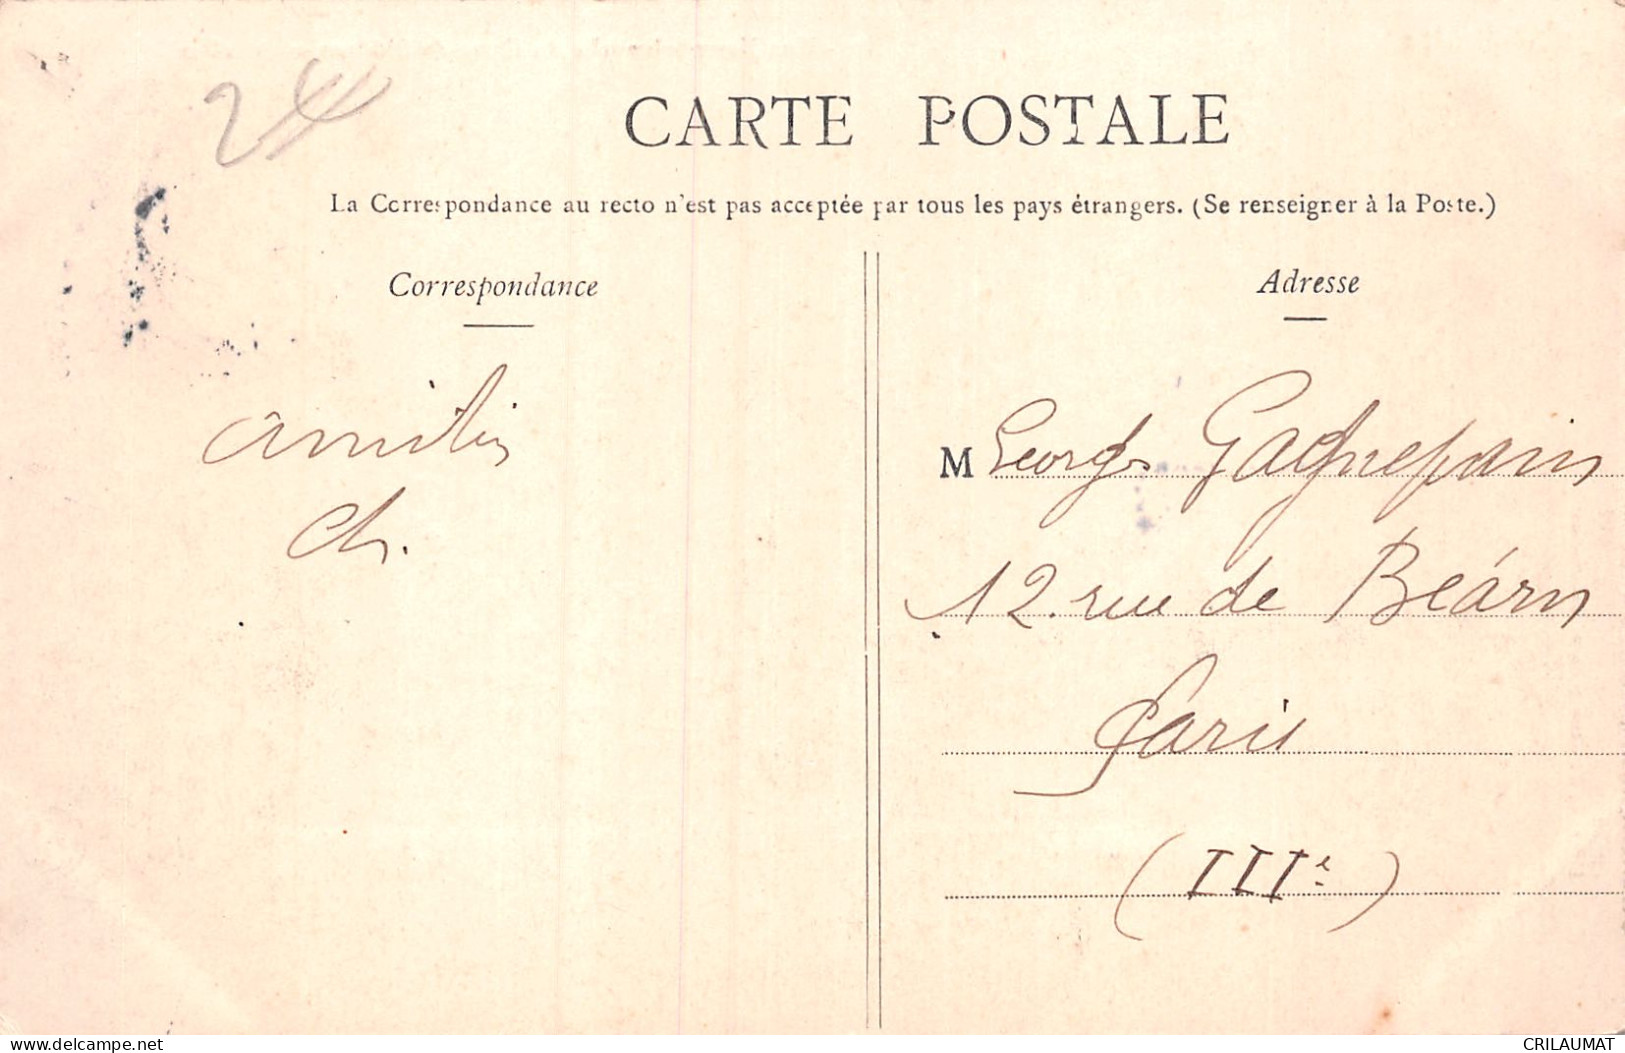 CARTE POSTALE
La Correspondance au recto n'est pas acceptée par tous les pays étrangers. (Se renseigner à la Poste.)
Correspondance
Adresse
Amitiés
Ch.
M Georges Gagnepain
12. rue de Béarn
Paris
(IIIe)
www.delcampe.net
CRILAUMAT